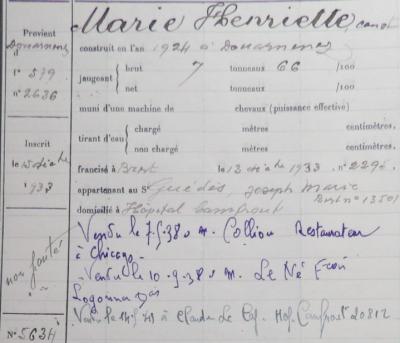 Marie Henriette, canot
Provient
Douarnenez
construit en l'an 1924 à Douarnenez
fº 579
nº 2636
jaugeant
brut 7 tonneaux 66 /100
net tonneaux /100
muni d'une machine de chevaux (puissance effective)
tirant d'eau
chargé mètres centimètres.
non chargé mètres centimètres.
Inscrit
le 15
1933
francisé à Brest le 13 1933 nº 2295
appartenant au Sr Guédès, Joseph Marie
nº 13501
domicilié à Hôpital Camfrout
Vendu le 7-5-38 a M. Colliou Restaurateur
à Chicago
Vendu le 10-9-38 a M. Le Né
Logonna
le à Claude Le Hop. Camfrout 20812
non ponté
Nº 5634